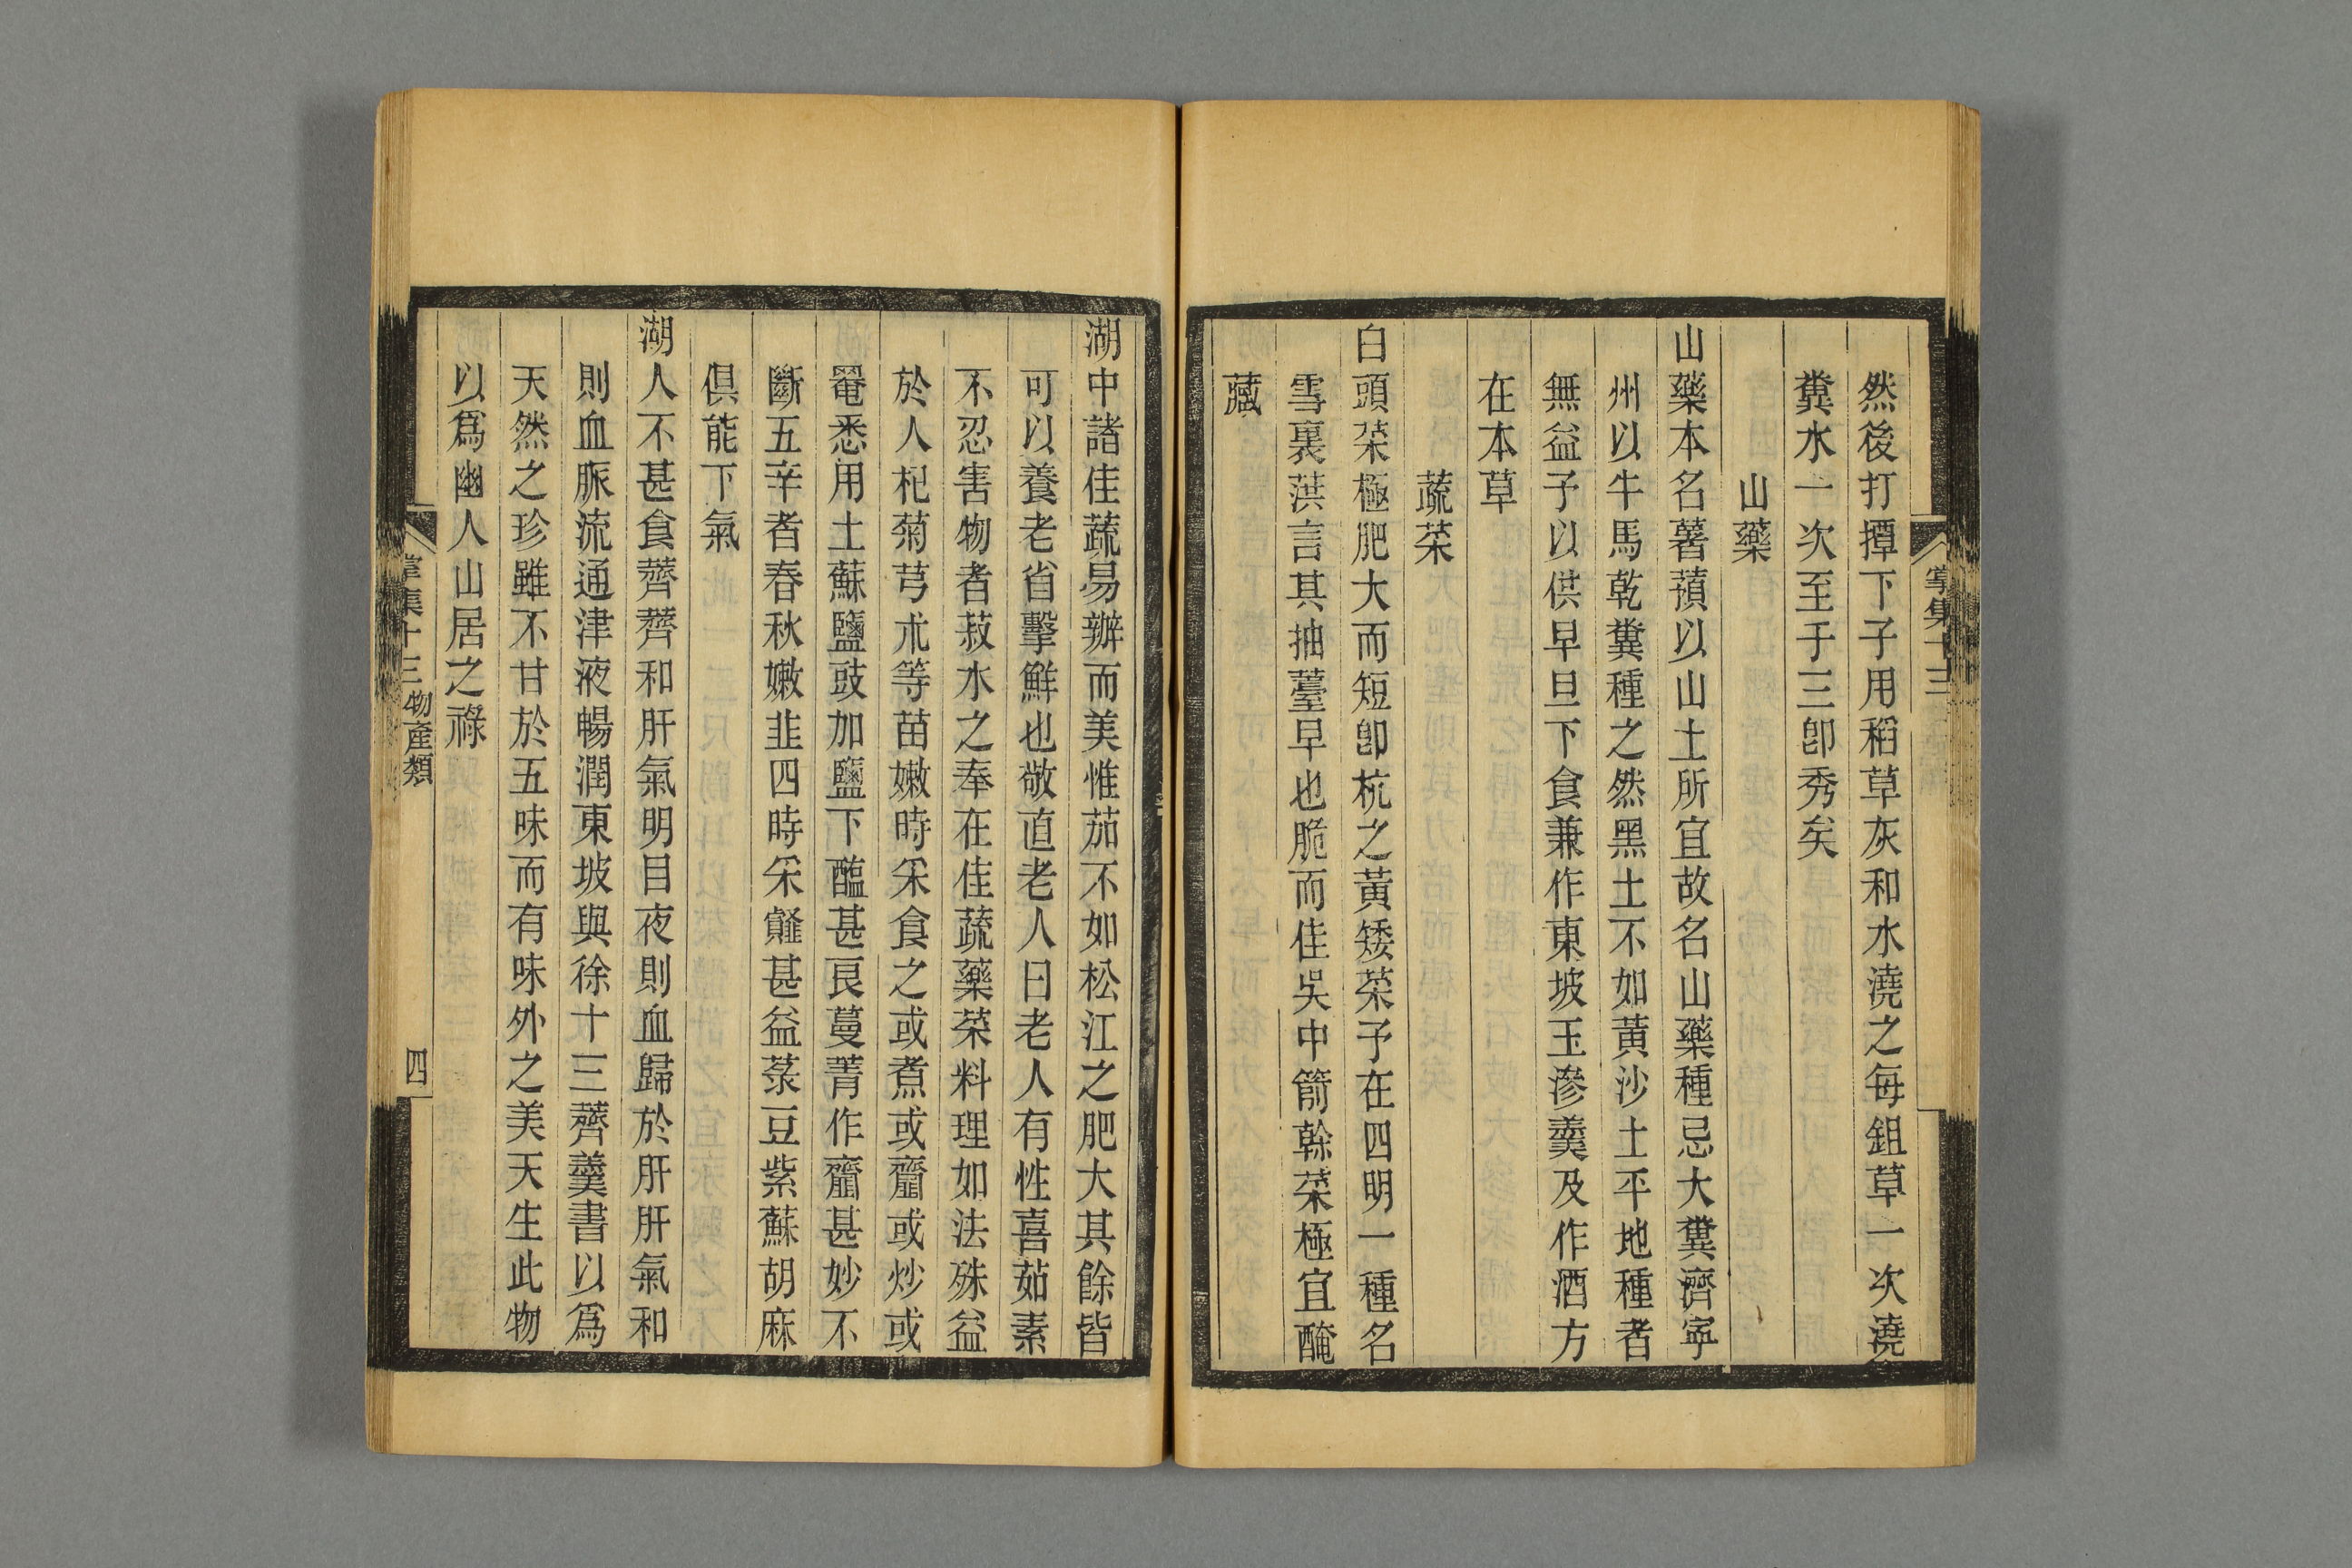 然後打撢下子用稻草灰和水澆之每鉏草一次澆
糞水一次至于三卽秀矣
山藥
山藥本名薯蕷以山土所宜故名山藥種忌大糞濟寧
州以牛馬乾糞種之然黑土不如黃沙土平地種者
無益子以供早旦下食兼作東坡玉滲羹及作酒方
在本草
蔬菜
白頭菜極肥大而短卽杭之黃矮菜予在四明一種名
雪裏蕻言其抽薹早也脆而佳吳中箭幹菜極宜醃
藏
掌集十三
湖中諸佳蔬易辦而美惟茄不如松江之肥大其餘皆
可以養老省擊鮮也敬直老人曰老人有性喜茹素
不忍害物者菽水之奉在佳蔬藥菜料理如法殊益
於人杞菊芎朮等苗嫩時采食之或煮或齏或炒或
罨悉用土蘇鹽豉加鹽下醞甚良蔓菁作齏甚妙不
斷五辛者春秋嫩韭四時采薤甚益菉豆紫蘇胡麻
俱能下氣
湖人不甚食薺薺和肝氣明目夜則血歸於肝肝氣和
則血脈流通津液暢潤東坡與徐十三薺羹書以爲
天然之珍雖不甘於五味而有味外之美天生此物
以爲幽人山居之祿
掌集十三 物產類 四